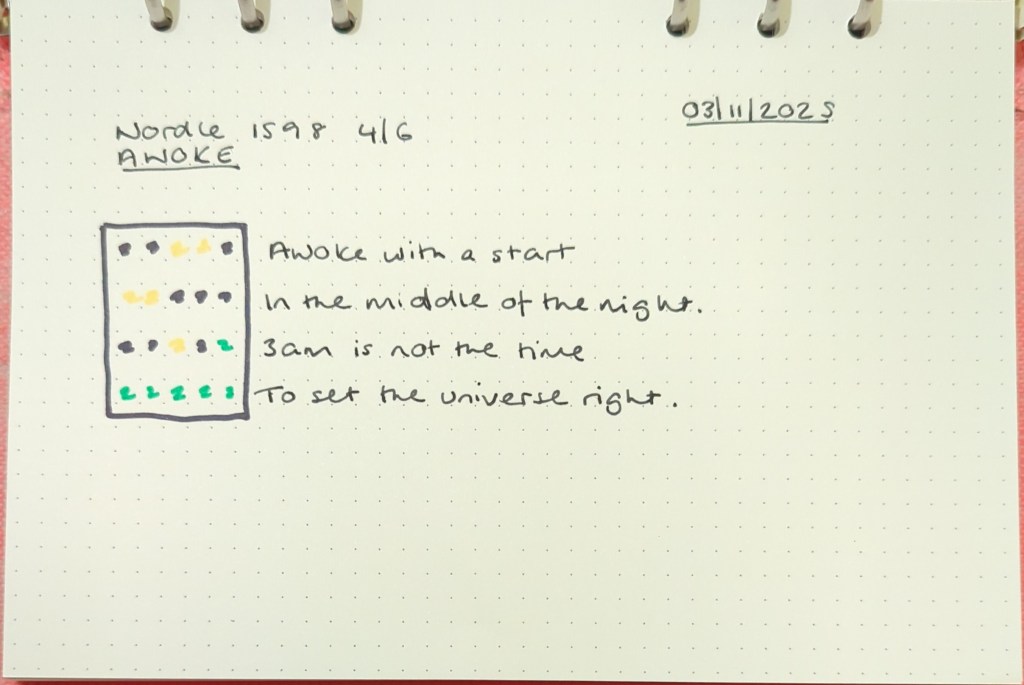 03/11/2025
Wordle 1598 4/6
AWOKE
Awoke with a start
In the middle of the night.
3am is not the time
To set the universe right.